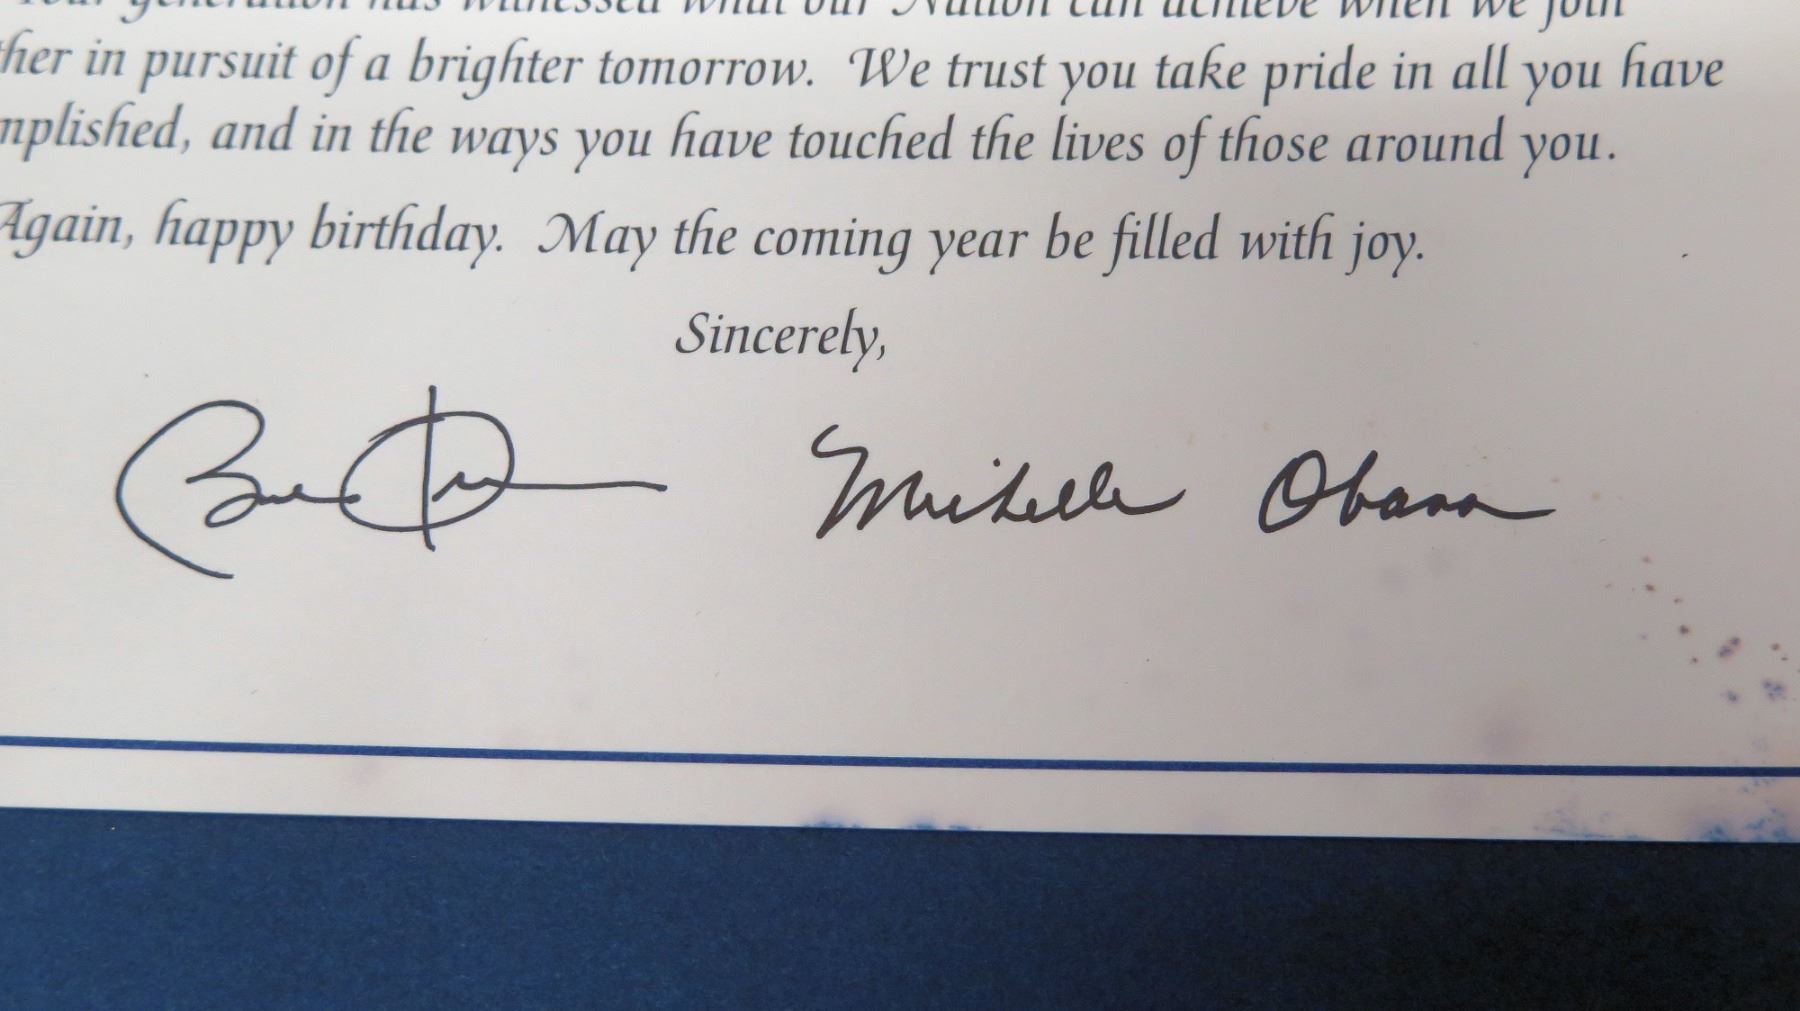 generation has witnessed what our Nation can achieve when we join
ther in pursuit of a brighter tomorrow. We trust you take pride in all you have
mplished, and in the ways you have touched the lives of those around you.
Again, happy birthday. May the coming year be filled with joy.
Sincerely,
Michelle Obama